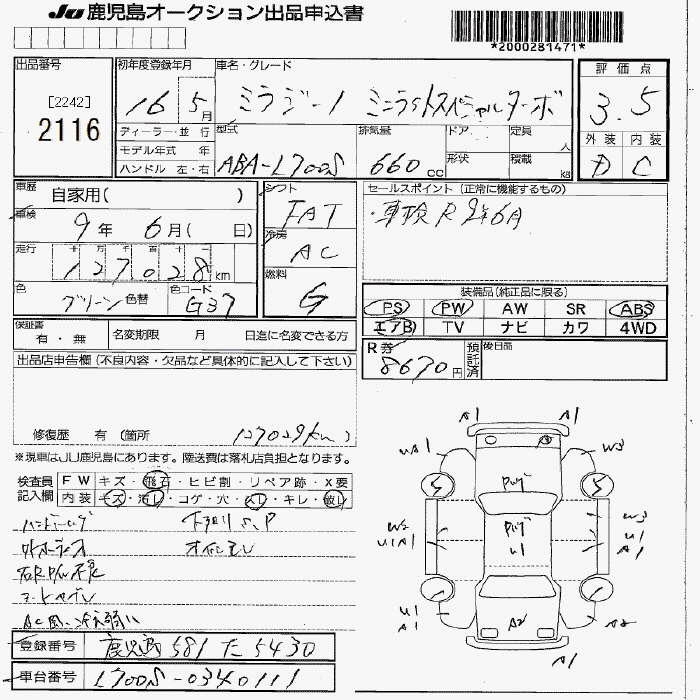 JU 鹿児島オークション出品申込書
*2000281471*
出品番号
[2242]
2116
初年度登録年月
16 5月
車名・グレード
ミラジーノ ミニライトスペシャルターボ
評価点
3.5
外装 内装
D C
ディーラー・並行
モデル年式 年
ハンドル 左・右
型式
ABA-L700S
排気量
660cc
ドア
形状
定員 人
積載 kg
車歴
自家用( )
車検
9年 6月( 日)
走行 十 万 千 百 十
127028km
色
グリーン 色替
色コード
G37
シフト
FAT
冷房
AC
燃料
G
セールスポイント (正常に機能するもの)
・車検R9年6月
装備品(純正品に限る)
PS PW AW SR ABS
エアB TV ナビ カワ 4WD
保証書
有・無
名変期限 月 日迄に名変できる方
R券
8670円
預託済
後日品
出品店申告欄(不良内容・欠品など具体的に記入して下さい)
修復歴 有 (箇所 127029km)
※現車はJU鹿児島にあります。陸送費は落札店負担となります。
検査員記入欄
FW キズ・飛石・ヒビ割・リペア跡・X要
内装 キズ・汚レ・コゲ・穴・ハリ・キレ・破レ
オイルモレ
A1 A1
UA1 W3
S S
W2 W3
U1A1 U1
A1
U1
U1
A1 A2 A2
A1
登録番号 鹿児島 581 た 5430
車台番号 L700S-0340111